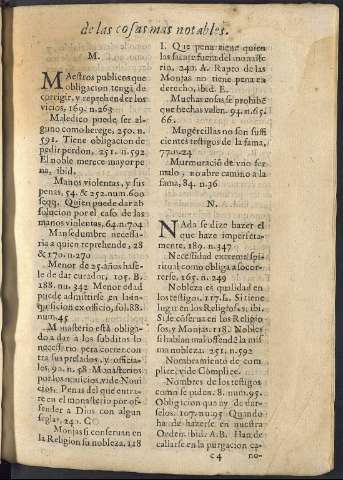 de las cosas mas notables.
M.
MAestros publicos que
obligacion tengā de
corrigir, y reprehender los
vicios, 169. n.263
Maledico puede ser al-
guno como herege, 250. n.
591. Tiene obligacion de
pedir perdon, 251. n.592
El noble merece mayor pe-
na, ibid.
Manos violentas, y sus
penas, 54. & 252. num.600
seqq. Quien puede dar ab-
solucion por el caso de las
manos violentas, 64. n.704
Mansedumbre necessa-
ria a quien reprehende, 28
& 170. n.270
Menor de 25. años hase
le de dar curador, 105. B.
188. nu. 342 Menor edad
puede admitirse en la in-
quisicion ex officio, fol. 88.
num. 45
Monasterio està obliga-
do a dar a los subditos lo
necessario pera correr con-
tra sus prelados, y officia-
les, 90. n. 58. Monasterios
por los novicios, vide Novi-
cios. Penas del que entra-
re en el monasterio por of-
fender a Dios con algun
seglar, 241. C
Monjas si conseruan en
la Religion su nobleza, 118
I. Que pena tiene quien
las saca fuera del monaste-
rio, 240. A. Rapto de las
Monjas no tiene pena en
derecho, ibid. E.
Muchas cosas se prohibē
que hechas valen. 94. n.65.
66.
Mugercillas no son suffi-
cientes testigos de la fama,
77. n.24
Murmuraciō de vno for-
malo, no abre camino a la
fama, 84. n.36
N.
NAda se dize hazer el
que haze imperfeta-
mente, 189. n.347
Necessidad extrema spi-
ritual como obliga a socor-
rerse, 165. n. 249
Nobleza es qualidad en
los testigos, 117. L. Si tiene
lugar en los Religiosos, ibi.
Si se cōserua en los Religio-
sos, y Monjas, 118. Nobles
si hablan mal offendē la mis
ma nobleza. 251. n.592
Nombramiento de com-
plice, vide Còmplice.
Nombres de los testigos
como se piden, 8. num. 95.
Obligacion que ay de dar-
selos, 107. nu. 95 Quando
ha de hazerse en nuestra
Orden, ibid. A.B. Han de
callarse en la purgacion ca-
c 4 no-